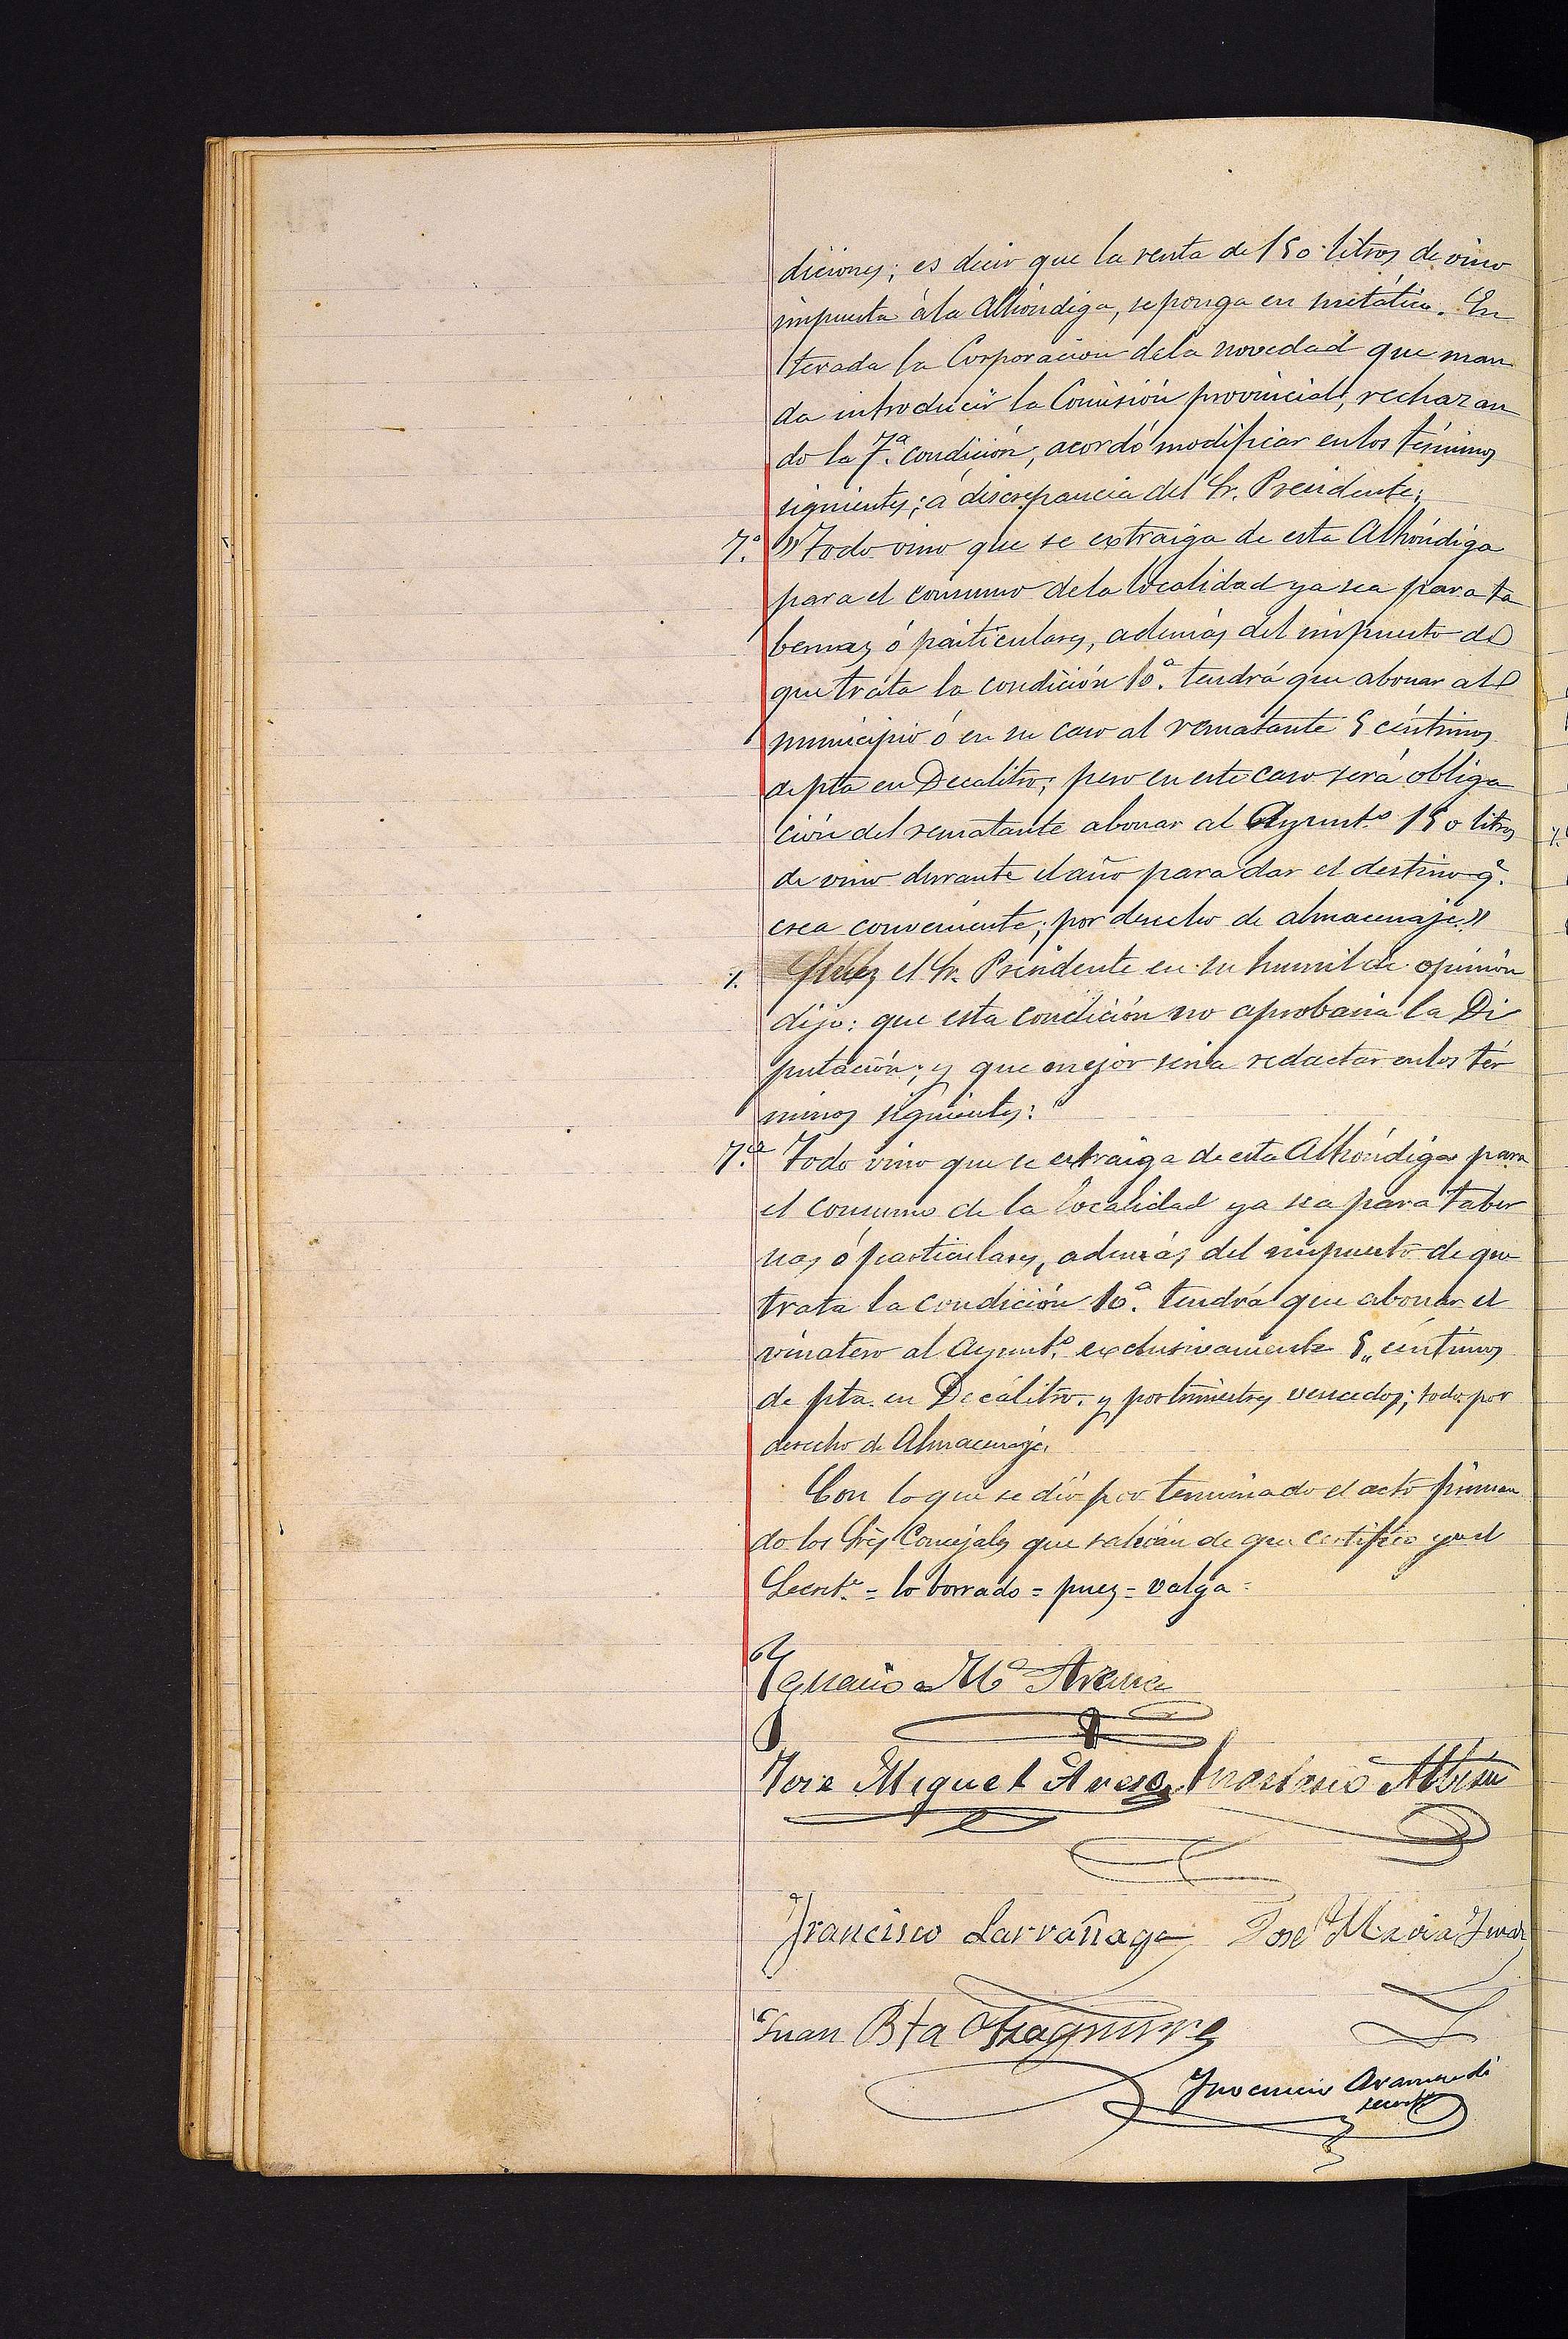 diciones; es decir que la renta de 150 litros de vino
impuesta á la Alhóndiga, se ponga en metálico. En
terada la Corporación dela novedad que man
da introducir la Comisión provincial, rechazan
do la 7.ª condición; acordó modificar enlos términos
siguientes; á discrepancia del Sr. Presidente;
7.ª "Todo vino que se extraiga de esta Alhóndiga
para el consumo dela localidad ya sea para ta
bernas ó particulares, además del impuesto de
que trata la condición 10.ª tendrá que abonar al
municipio ó en su caso al rematante 5 céntimos
de pta en Decalitro; pero en este caso será obliga
ción del rematante abonar al Ayunt.º 150 litros
de vino durante el año para dar el destino q.ᵉ
crea conveniente; por derecho de almacenaje."
Pues el Sr. Presidente en su humilde opinión
dijo: que esta condición no aprobaria la Di
putación; y que mejor seria redactar enlos tér
minos siguientes:
7.ª Todo vino que se extraiga de esta Alhóndiga para
el consumo de la localidad ya sea para taber
nas ó particulares, además del impuesto de que
trata la condición 10.ª tendrá que abonar el
vinatero al Ayunt.º exclusivamente 5,, céntimos
de pta. en Decálitro. y por trimestres vencedos; todo por
derecho de Almacenaje.
Con lo que se dió por terminado el acto firman
do los Sres Concejales que sabían de que certifico yo el
Secret.º = lo borrado = puez = valga =
Ygnacio Mª Arana
Jose Miguel Areso Anastasio Albisu
Francisco Larrañaga Jose Maria
Juan Bta Otzaguirre
Ynocencio Aramendi
Secret.º